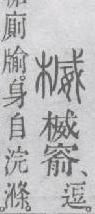 楲楲窬、逗。
廁牏。身自浣滌。